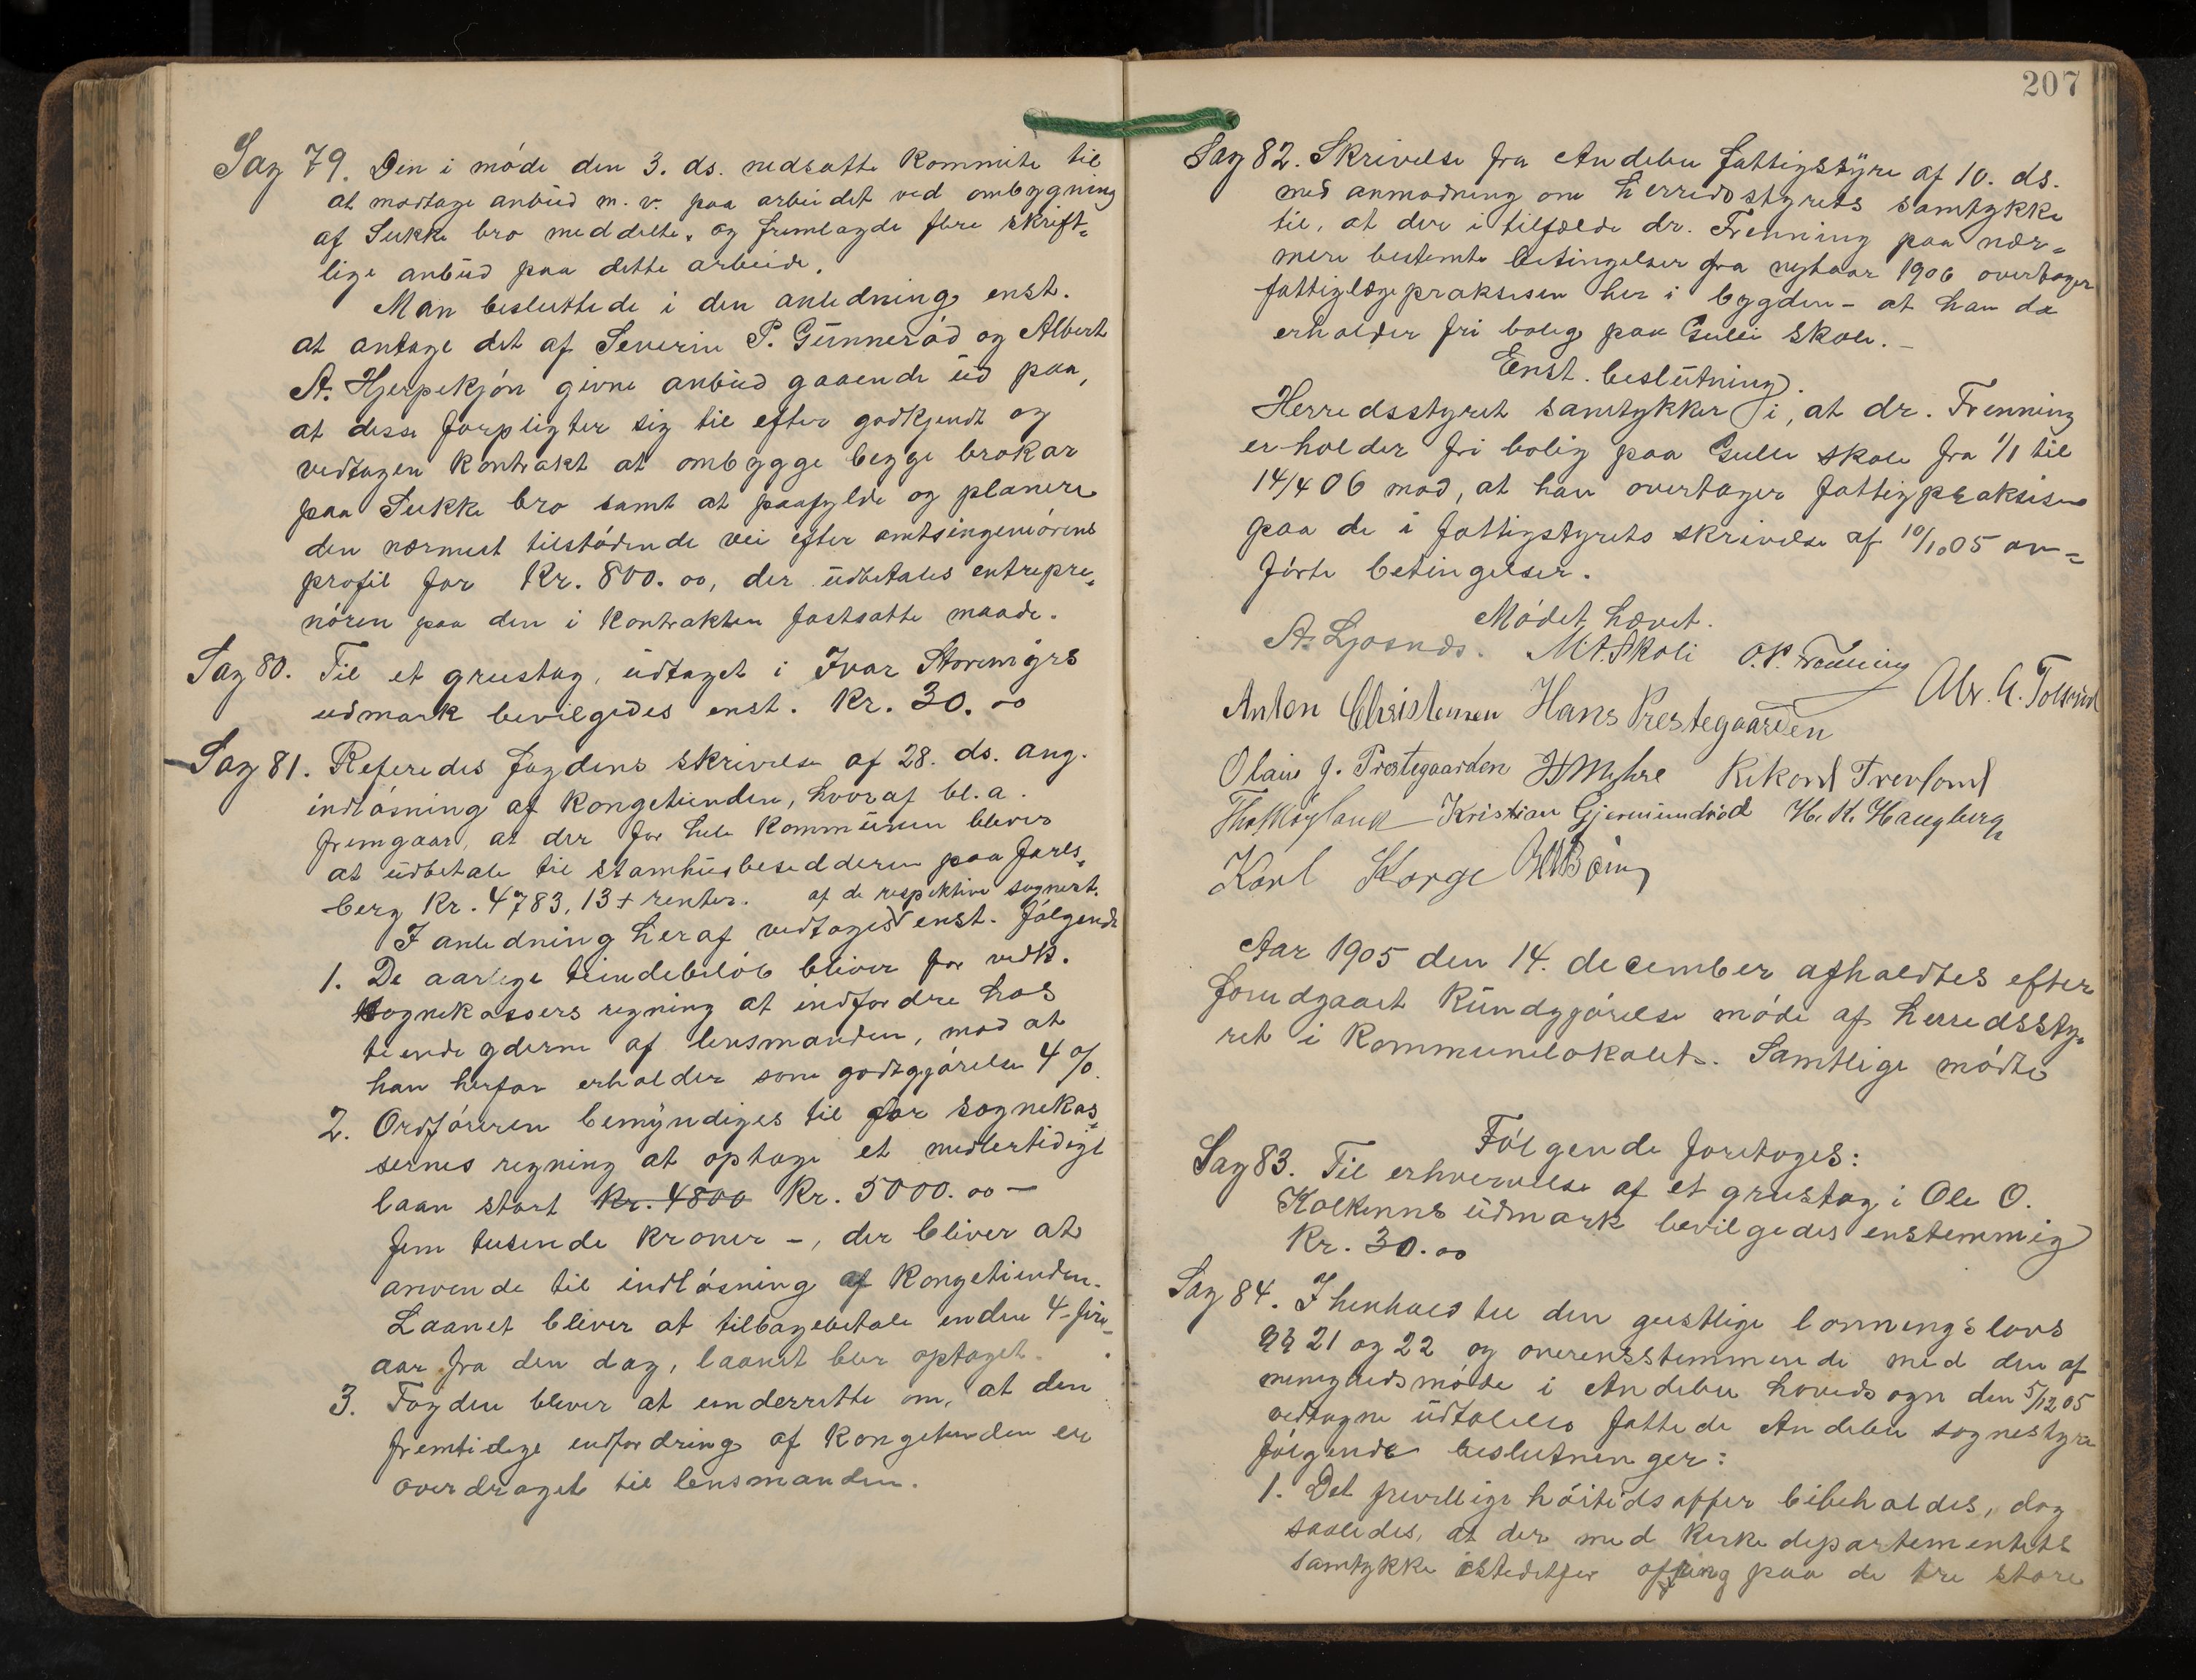 Sag 79. Den i møde den 3. ds. nedsatte Kommite til
at modtage anbud m.v. paa arbeidet ved ombygning
af Sukke bro meddelte og fremlagde flere skrift-
lige anbud paa dette arbeide.
Man besluttede i den anledning enst.
at antage det af Severin P. Gunnerød og Albert
A. Hjerpekjøn givne anbud gaaende ud paa,
at disse forpligter sig til efter godkjendt og
vedtagen Kontrakt at ombygge begge brokar
paa Sukke bro samt at paafylde og planere
den nærmest tilstødende vei efter amtsingeniørens
profil for Kr. 800.00, der udbetales entrepre-
nøren paa den i Kontrakten fastsatte maade.
Sag 80. Til et grustag, udtaget i Ivar Storemyrs
udmark bevilgedes enst. Kr. 30.00
Sag 81. Referedes fogdens skrivelse af 28. ds. ang.
indløsning af Kongetienden, hvoraf bl.a.
fremgaar, at der for hele Kommunen blever
at udbetale til stamhusbesidderen paa Jarls-
berg Kr. 4783,13 + renter. af de respektive sognest.
I anledning heraf vedtoges enst. følgende
1. De aarlige tiendebeløb bliver for vedk.
sognekassers regning at indfordre hos
tiendeyderne af lensmanden, mod at
han herfor erholder som godtgjørelse 4 %.
2. Ordføreren bemyndiges til for sognekas-
sernes regning at optage et midlertidigt
laan stort Kr. 4800 Kr. 5000.00 –
fem tusende Kroner –, der bliver at
anvende til indløsning af Kongetienden.
Laanet bliver at tilbagebetale inden 4-fire-
aar fra den dag, laanet blir optaget.
3. Fogden blever at underrette om, at den
fremtidige indfordring af Kongetienden er
overdraget til lensmanden.
207
Sag 82. Skrivelse fra Andebu fattigstyre af 10. ds.
med anmodning om herredsstyrets samtykke
til, at der i tilfælde dr. Frenning paa nær-
mere bestemte betingelser fra nytaar 1906 overtager
fattiglægepraksisen her i bygden – at han da
erholder fri bolig paa Gulli skole. –
Enst. beslutning.
Herredsstyret samtykker i, at dr. Frenning
erholder fri bolig paa Gulli skole fra 1/1 til
14/4 06 mod, at han overtager fattigpraksisen
paa de i fattigstyrets skrivelse af 10/10 05 an-
førte betingelser.
Mødet hævet.
A. Ljosnæs. M. A. Skoli O. P.
Anton Christensen Hans Prestegaarden Abr. A.
Olaus J. Prestegaarden H Myhre Rikard Trevland
Kristian Gjermundrød H. K. Haugberg
Karl Korge
Aar 1905 den 14. december afholdtes efter
forudgaaet Kundgjørelse møde af herredssty-
ret i Kommunelokalet. Samtlige mødte
Følgende foretoges:
Sag 83. Til erhvervelse af et grustag i Ole O.
Kolkinns udmark bevilgedes enstemmig
Kr. 30.00
Sag 84. I henhold til den geistlige lønningslovs
§§ 21 og 22 og overensstemmende med den af
menighedsmøde i Andebu hovedsogn den 5/12 05
vedtagne udtalelse fattede Andebu sognestyre
følgende beslutninger:
1. Det frivillige høitidsoffer bibeholdes, dog
saaledes, at der med Kirkedepartementets
samtykke istedetfor ofring paa de tre store